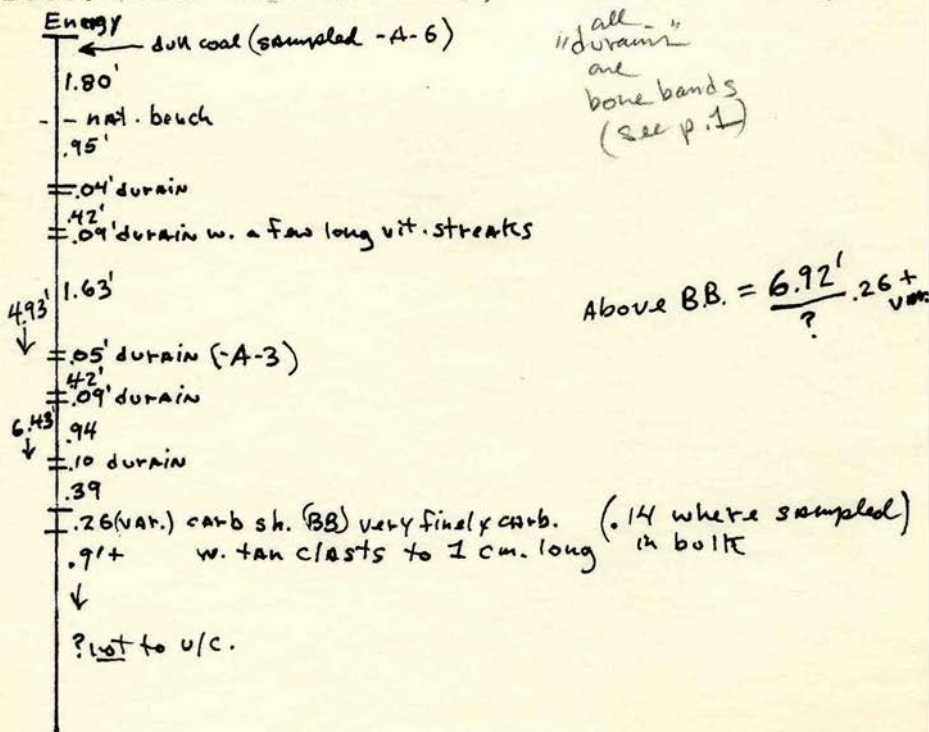 Energy
← dull coal (sampled -A-6)
all
"durains"
are
bone bands
(see p.1)
1.80'
- - nat. bench
.95'
.04' durain
.42'
.09' durain w. a few long vit. streaks
1.63'
Above B.B. = 6.92' .26 + var.
?
4.93'
↓
.05' durain (-A-3)
.42'
.09' durain
6.43'
↓
.94
.10 durain
.39
.26 (var.) carb sh. (BB) very finely carb. (.14 where sampled)
.9'+ w. tan clasts to 1 cm. long in bulk
↓
? not to u/c.